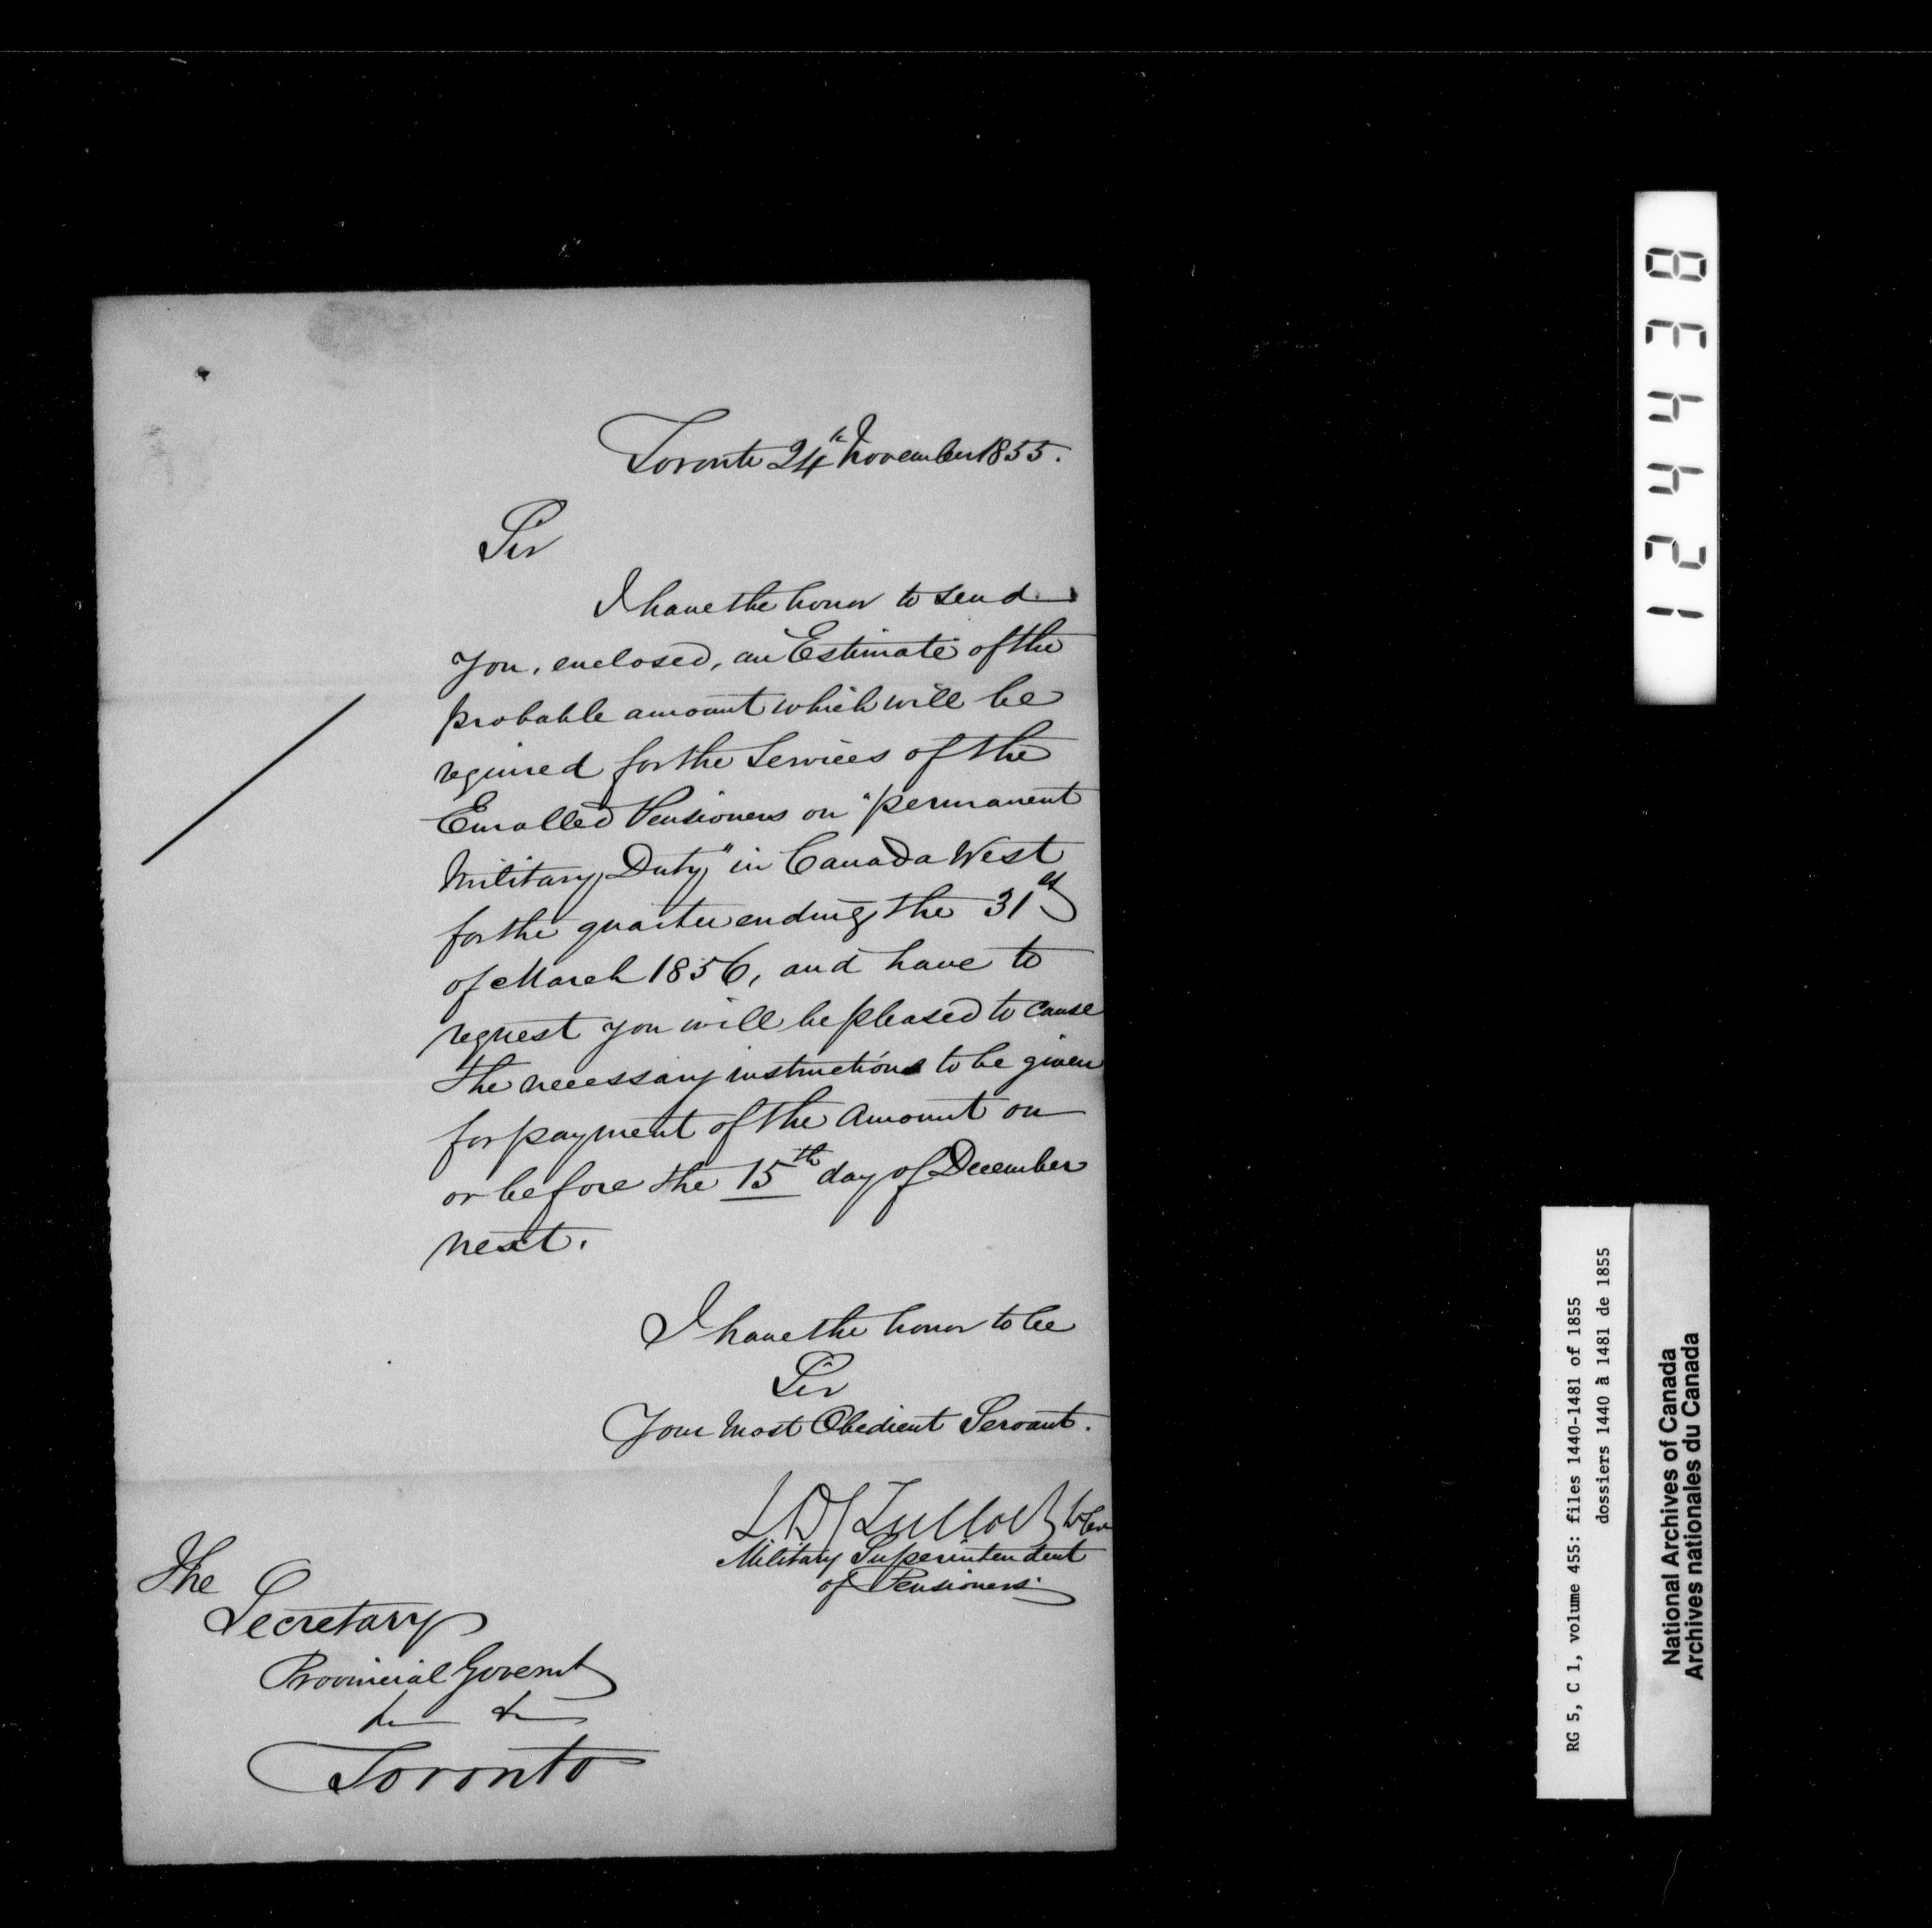 Toronto 24th November 1855.
Sir
I have the honor to send
you, enclosed, an Estimate of the
probable amount which will be
required for the Services of the
Enrolled Pensioners on "permanent
Military Duty" in Canada West
for the quarter ending the 31st
of March 1856, and have to
request you will be pleased to cause
the necessary instructions to be given
for payment of the amount on
or before the 15th day of December
next.
I have the honor to be
Sir
Your Most Obedient Servant.
Tulloch
Military Superintendent
of Pensioners.
The
Secretary
Provincial Governt
&c &c
Toronto
124438
RG 5, C 1, volume 455: files 1440-1481 of 1855
dossiers 1440 à 1481 de 1855
National Archives of Canada
Archives nationales du Canada